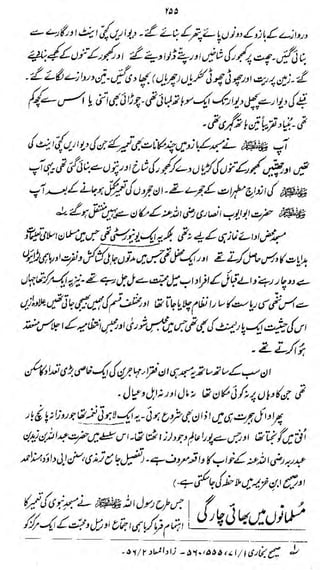 ۲۵۵
دروازے کے بازو کے دونوں پائے پتھر کے بنائے گئے۔ دیواریں کچی اینٹ اور گارے سے
بنائی گئیں۔ چھت پر کھجور کی شاخیں اور پتے ڈلوا دیئے گئے اور کھجور کے تنوں کے کھمبے بنا دیئے
گئے۔ زمین پر ریت اور چھوٹی چھوٹی کنکریاں (چھریاں) بچھا دی گئیں۔ تین دروازے لگائے گئے۔
قبلے کی دیوار سے پچھلی دیوار تک ایک سو ہاتھ لمبائی تھی۔ چوڑائی بھی اتنی یا اس سے کچھ کم
تھی۔ بنیاد تقریباً تین ہاتھ گہری تھی۔
آپ ﷺ نے مسجد کے بازو میں چند مکانات بھی تعمیر کئے جن کی دیواریں کچی اینٹ کی
تھیں اور چھتیں کھجور کے تنوں کی کڑیاں دے کر کھجور کی شاخ اور پتوں سے بنائی گئی تھیں۔ یہی آپ
ﷺ کی ازواج مطہرات کے حجرے تھے۔ ان حجروں کی تعمیر مکمل ہو جانے کے بعد آپ
ﷺ حضرت ابو ایوب انصاری رضی اللہ عنہ کے مکان سے یہیں منتقل ہو گئے۔
مسجد محض ادائے نماز ہی کے لیے نہ تھی بلکہ یہ ایک یونیورسٹی تھی جس میں مسلمان اسلامی تعلیمات و
ہدایات کا درس حاصل کرتے تھے۔ اور ایک محفل تھی جس میں مدتوں جاہلی کشاکش و نفرت اور باہمی لڑائیوں
سے دوچار رہنے والے قبائل کے افراد اب میل محبت سے مل جل رہے تھے۔ نیز یہ ایک مرکز تھا جہاں
سے اس ننھی سی ریاست کا سارا نظام چلایا جاتا تھا اور مختلف قسم کی مہمیں بھیجی جاتی تھیں علاوہ ازیں
اس کی حیثیت ایک پارلیمنٹ کی بھی تھی جس میں مجلس شوریٰ اور مجلس انتظامیہ کے اجلاس منعقد
ہوا کرتے تھے۔
ان سب کے ساتھ ساتھ یہ مسجد ہی ان فقراء مہاجرین کی ایک خاصی بڑی تعداد کا مسکن
تھی جن کا وہاں پر نہ کوئی مکان تھا نہ مال اور نہ اہل و عیال۔
پھر اوائل ہجرت ہی میں اذان بھی شروع ہوئی۔ یہ ایک لاہوتی نغمہ تھا جو روزانہ پانچ بار
اُفق میں گونجتا تھا اور جس سے پورا عالم وجود لرز اٹھتا تھا۔ اس سلسلے میں حضرت عبد اللہ بن زید بن
عبد ربہ رضی اللہ عنہ کے خواب کا واقعہ معروف ہے۔ (تفصیل جامع ترمذی، سنن ابی داؤد، مسند احمد
اور صحیح ابن خزیمہ میں ملاحظہ کی جا سکتی ہے۔)
مسلمانوں میں بھائی چارگی
جس طرح رسول اللہ ﷺ نے مسجد نبوی کی تعمیر کا
اہتمام فرما کر باہمی اجتماع اور میل و محبت کے ایک مرکز کو
صحیح بخاری ۱/۷۱، ۵۵۵، ۵۶۰۔ زاد المعاد ۲/۵۶۔